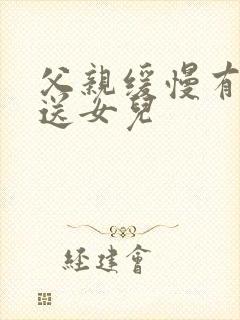 父親緩慢有
送女兒
经建會